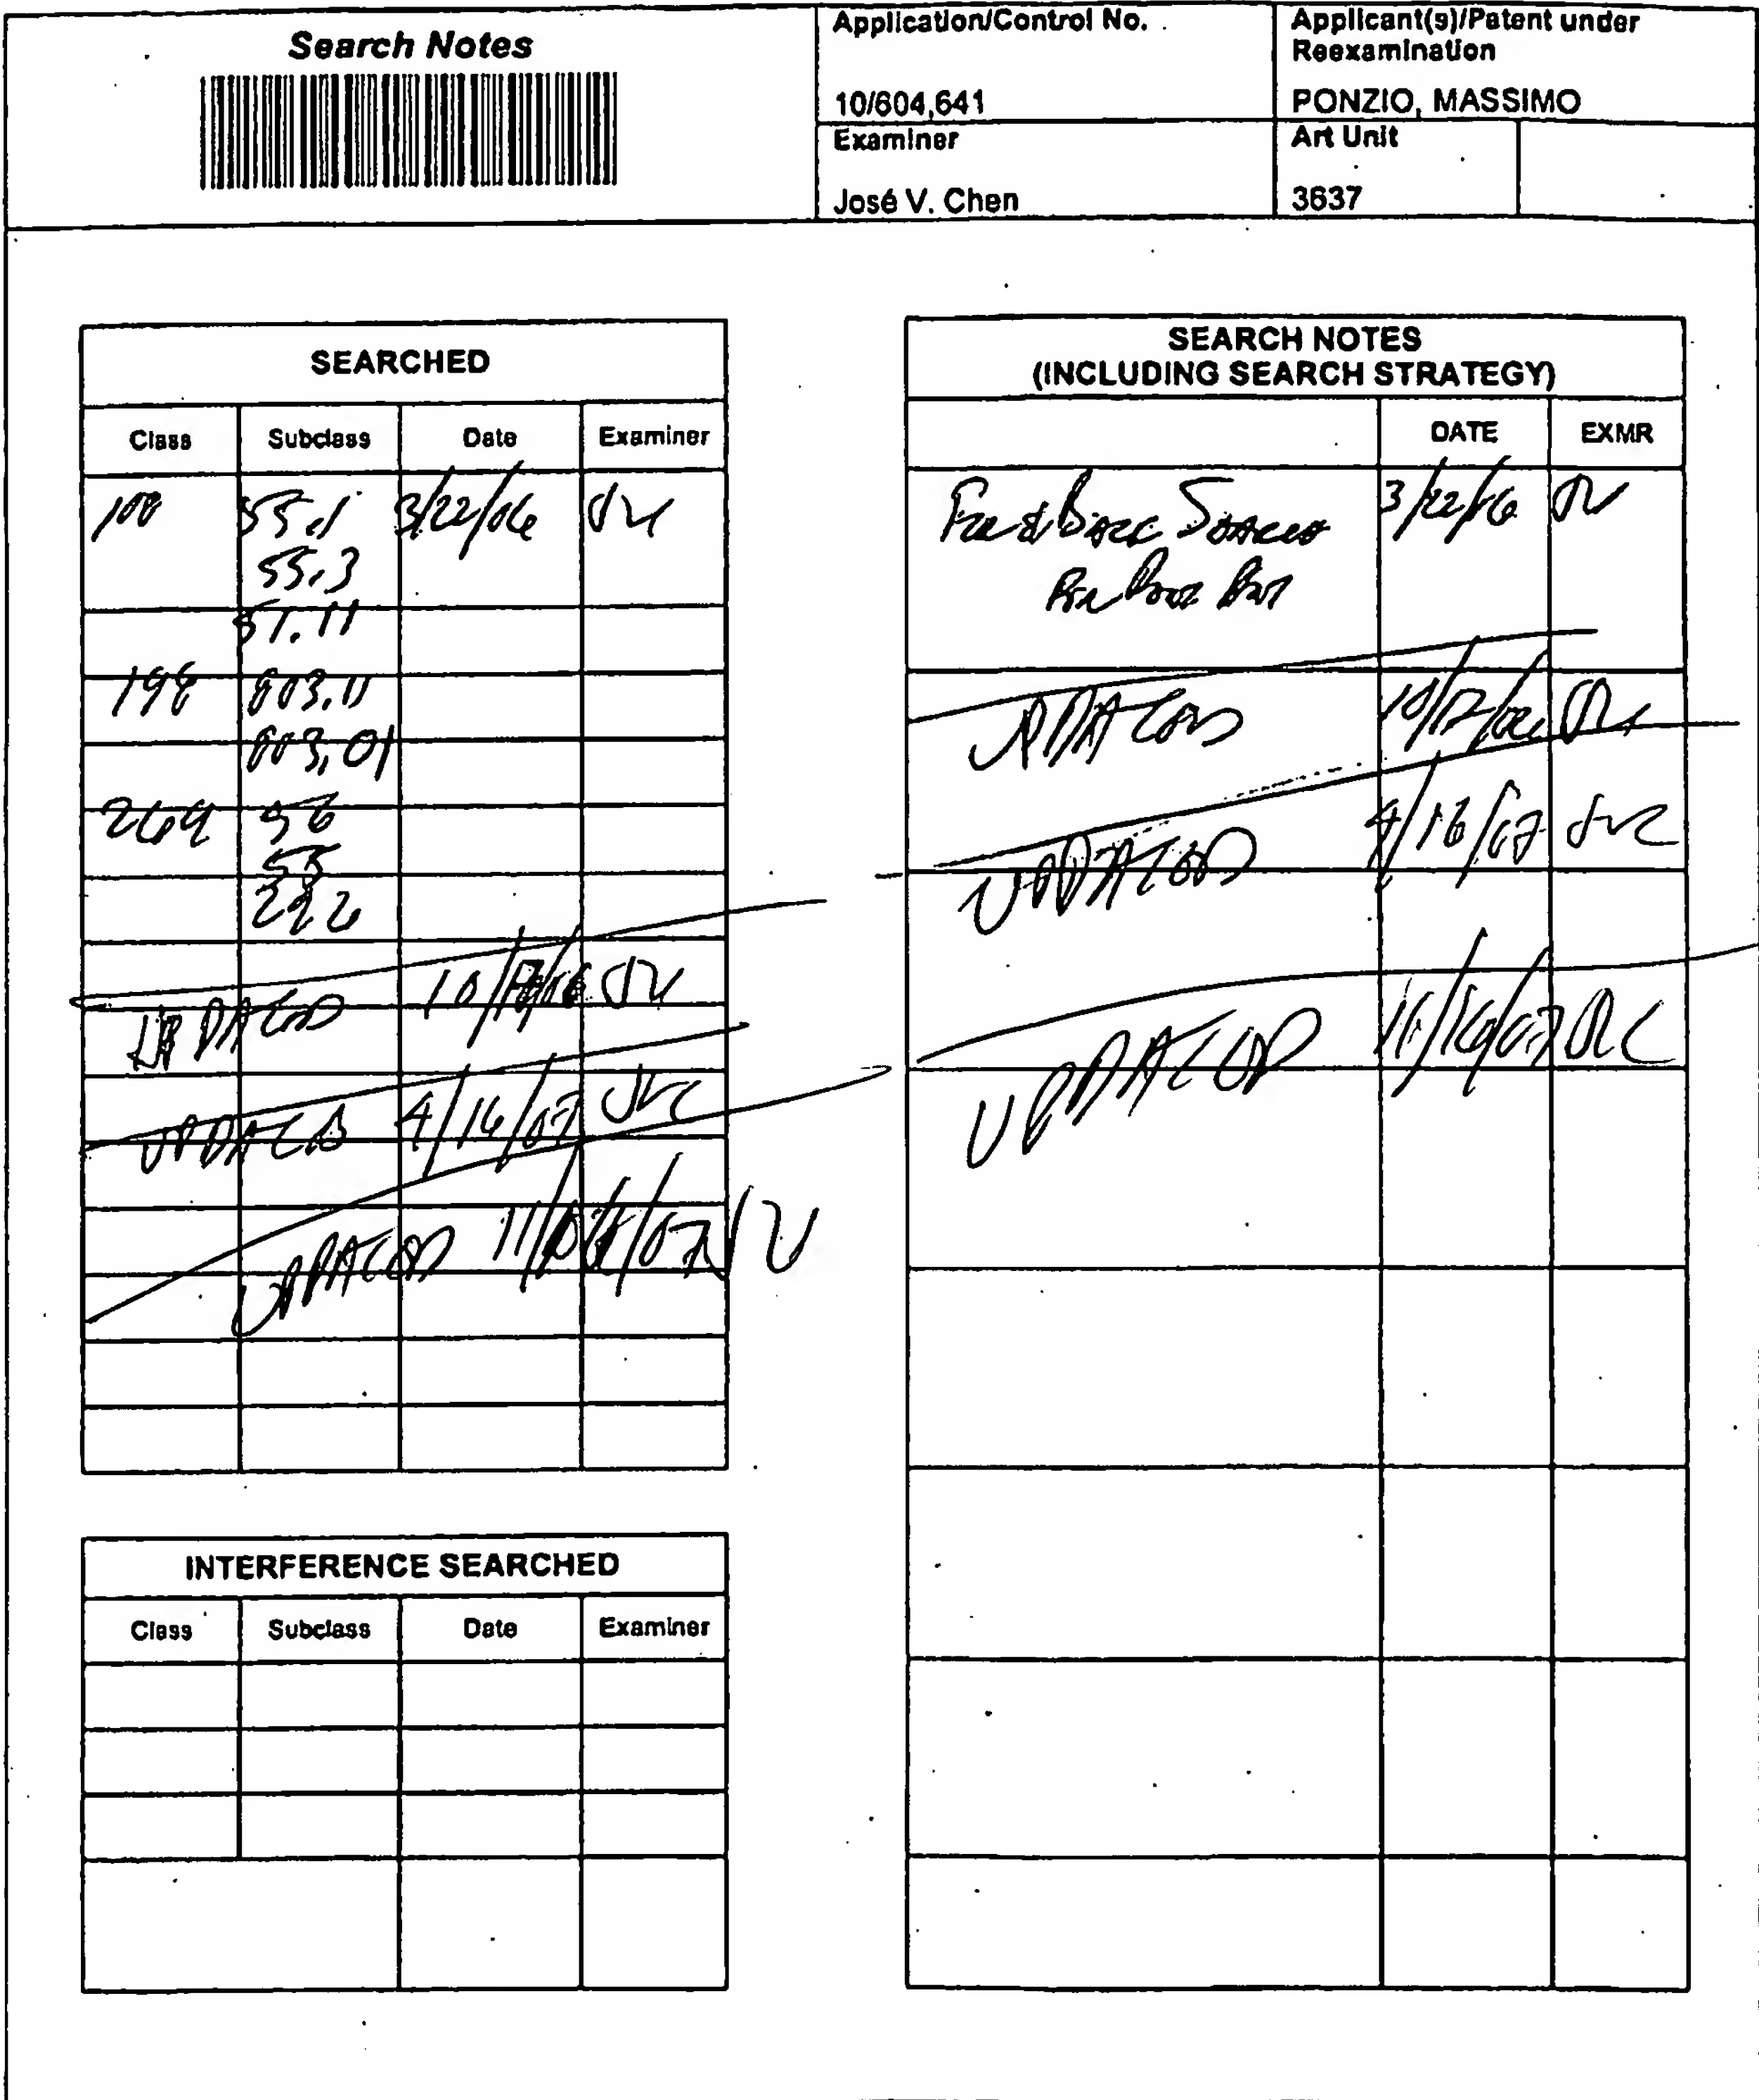 Search Notes
Application/Control No.
10/604,641
Applicant(s)/Patent under
Reexamination
PONZIO, MASSIMO
Examiner
José V. Chen
Art Unit
3637
SEARCHED
Class Subclass Date Examiner
108 55.1 3/22/06 JVC
55.3
57.11
198 803.11
803.01
269 56
55
292
UPDATED 10/17/06 JVC
UPDATED 4/16/07 JVC
UPDATED 11/07 JVC
INTERFERENCE SEARCHED
Class Subclass Date Examiner
SEARCH NOTES
(INCLUDING SEARCH STRATEGY)
DATE EXMR
3/22/06 JVC
UPDATED 10/17/06 JVC
UPDATED 4/16/07 JVC
UPDATED 07 JVC